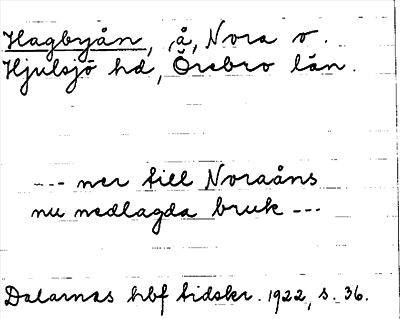 Hagbyån, å, Nora o.
Hjulsjö hd, Örebro län.
--- ner till Noraåns
nu nedlagda bruk ---
Dalarnas hbf tidskr. 1922, s. 36.